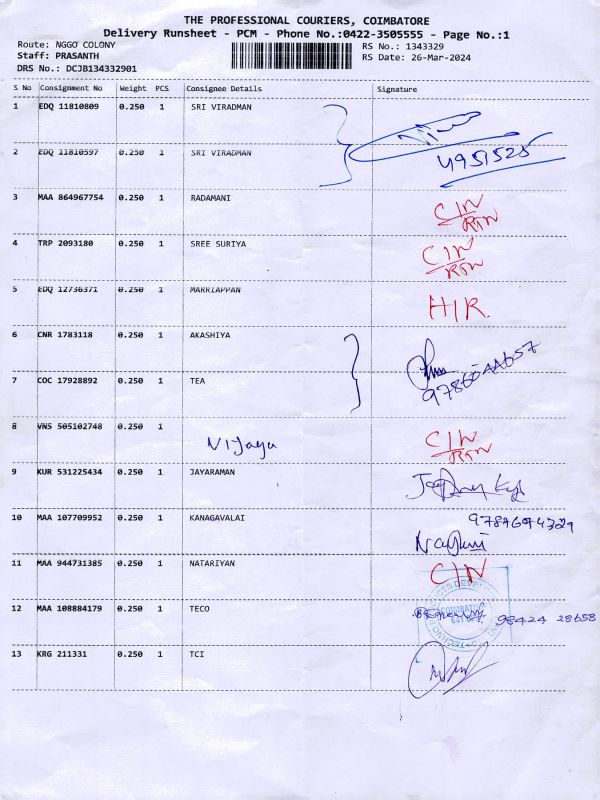 THE PROFESSIONAL COURIERS, COIMBATORE
Delivery Runsheet - PCM - Phone No.:0422-3505555 - Page No.:1
Route: NGGO COLONY RS No.: 1343329
Staff: PRASANTH RS Date: 26-Mar-2024
DRS No.: DCJB134332901
S No Consignment No Weight PCS Consignee Details Signature
1 EDQ 11810809 0.250 1 SRI VIRADMAN
2 EDQ 11810597 0.250 1 SRI VIRADMAN 4951525
3 MAA 864967754 0.250 1 RADAMANI C/N
RTN
4 TRP 2093180 0.250 1 SREE SURIYA C/N
RTN
5 EDQ 12736371 0.250 1 MARRIAPPAN H/R.
6 CNR 1783118 0.250 1 AKASHIYA
7 COC 17928892 0.250 1 TEA
8 VNS 505102748 0.250 1 Vijaya C/N
RTN
9 KUR 531225434 0.250 1 JAYARAMAN
10 MAA 107709952 0.250 1 KANAGAVALAI
11 MAA 944731385 0.250 1 NATARIYAN C/N
12 MAA 108884179 0.250 1 TECO 98424 28658
13 KRG 211331 0.250 1 TCI